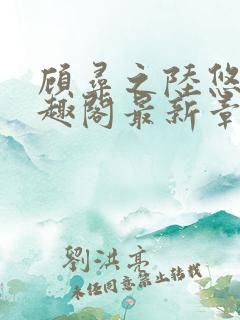 顾寻之陆悠
趣阁最新章
劉洪亮
未经同意禁止转载